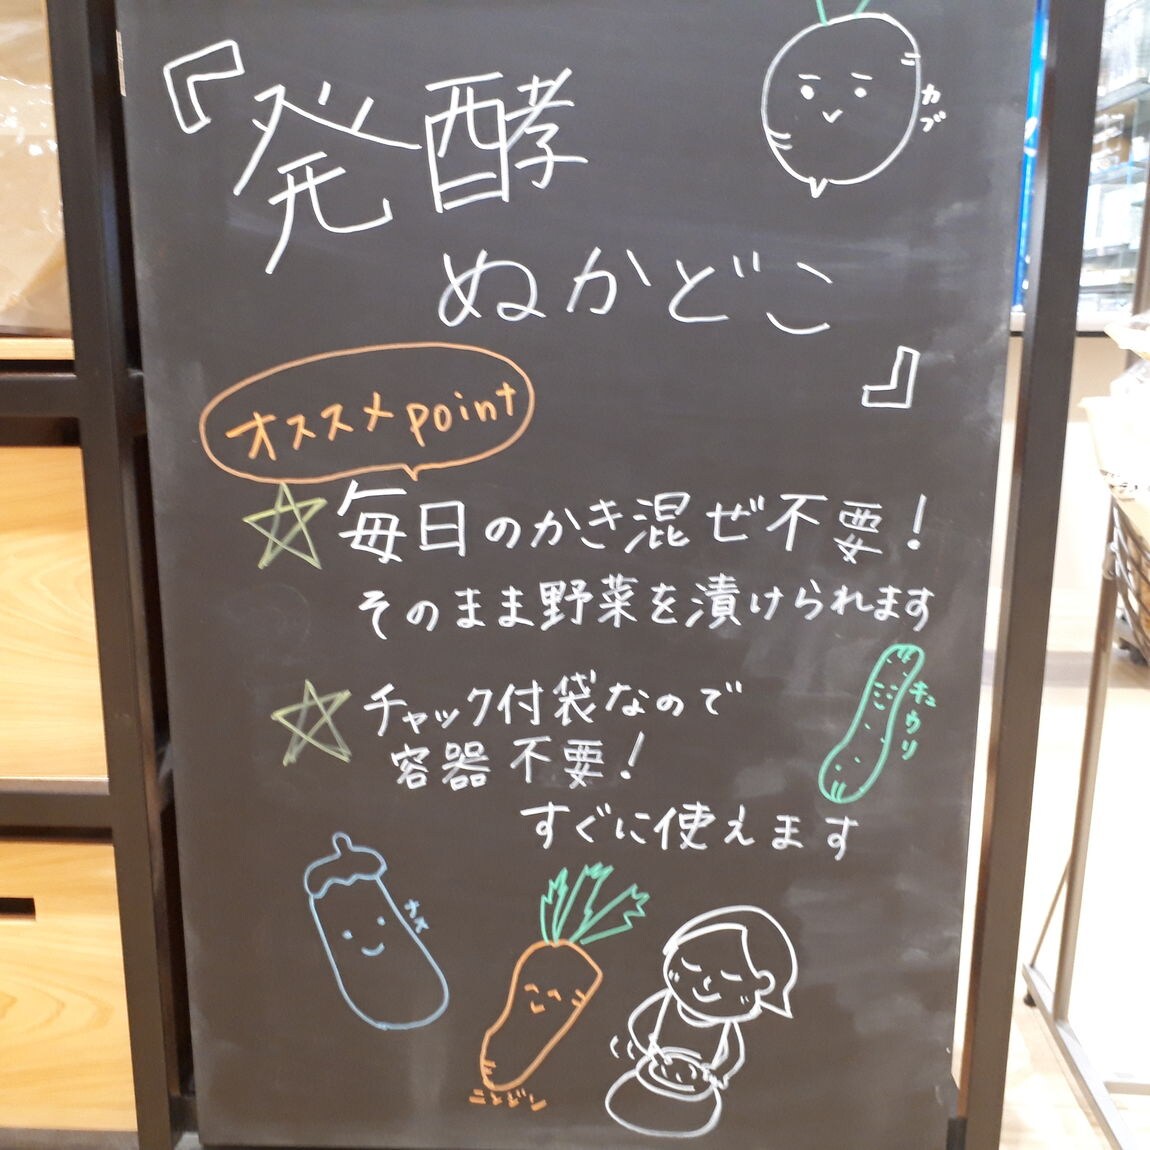 『発酵
ぬかどこ』
カブ
オススメpoint
☆毎日のかき混ぜ不要!
そのまま野菜を漬けられます
☆チャック付袋なので
容器不要!
すぐに使えます
キュウリ
ナス
ニンジン